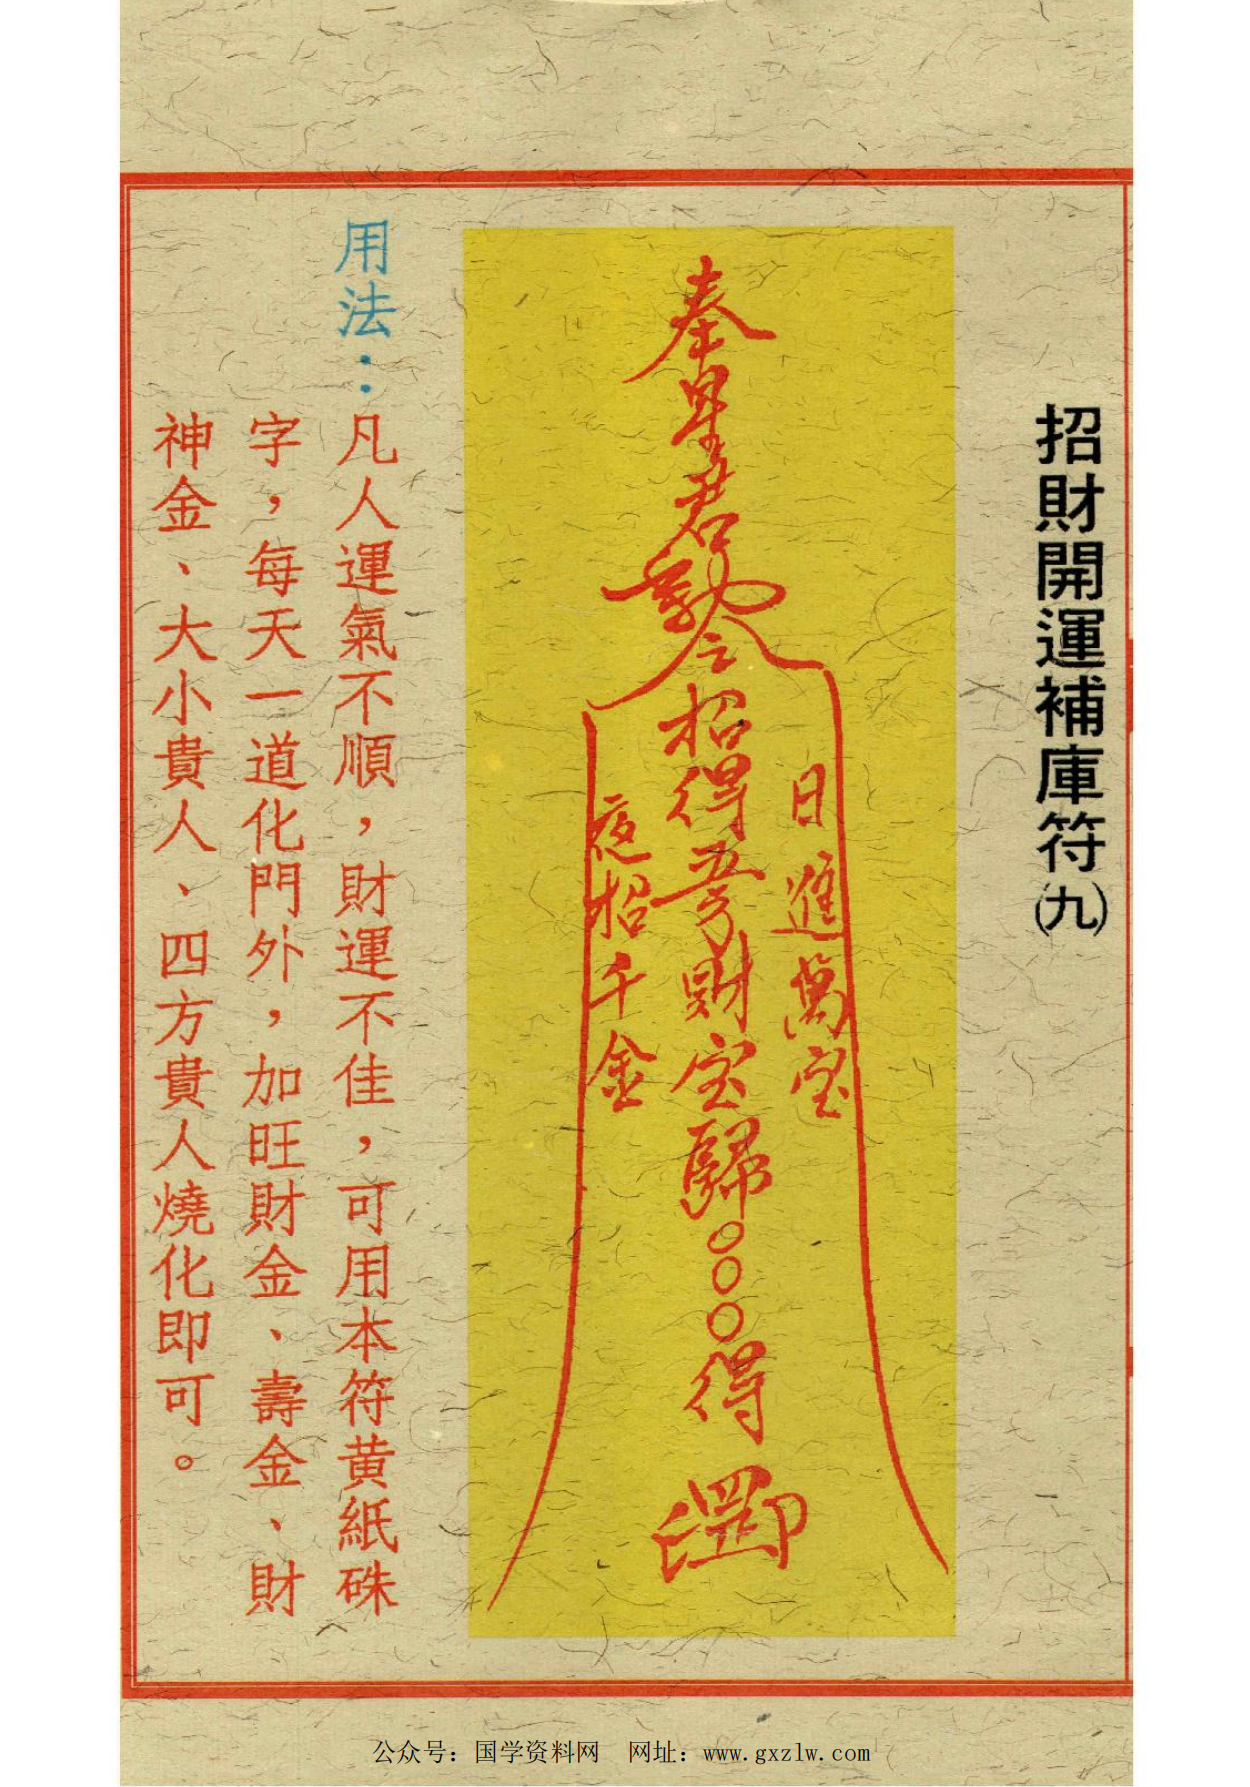 招財開運補庫符(九)
奉星君勅令招得五方財宝歸○○○得
日進萬宝
夜招千金
用法：凡人運氣不順，財運不佳，可用本符黄紙硃
字，每天一道化門外，加旺財金、壽金、財
神金、大小貴人、四方貴人燒化即可。
公众号：国学资料网 网址：www.gxzlw.com